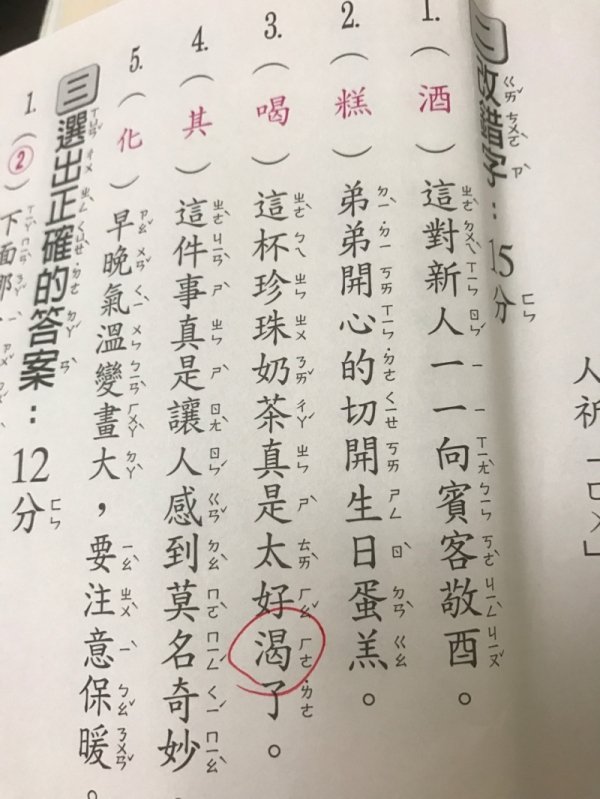 人祈「ㄈㄨ」
二 改錯字:15分
1.(酒)這對新人一一向賓客敬酉。
2.(糕)弟弟開心的切開生日蛋羔。
3.(喝)這杯珍珠奶茶真是太好渴了。
4.(其)這件事真是讓人感到莫名奇妙
5.(化)早晚氣溫變畫大,要注意保暖。
三 選出正確的答案:12分
1.(②)下面那